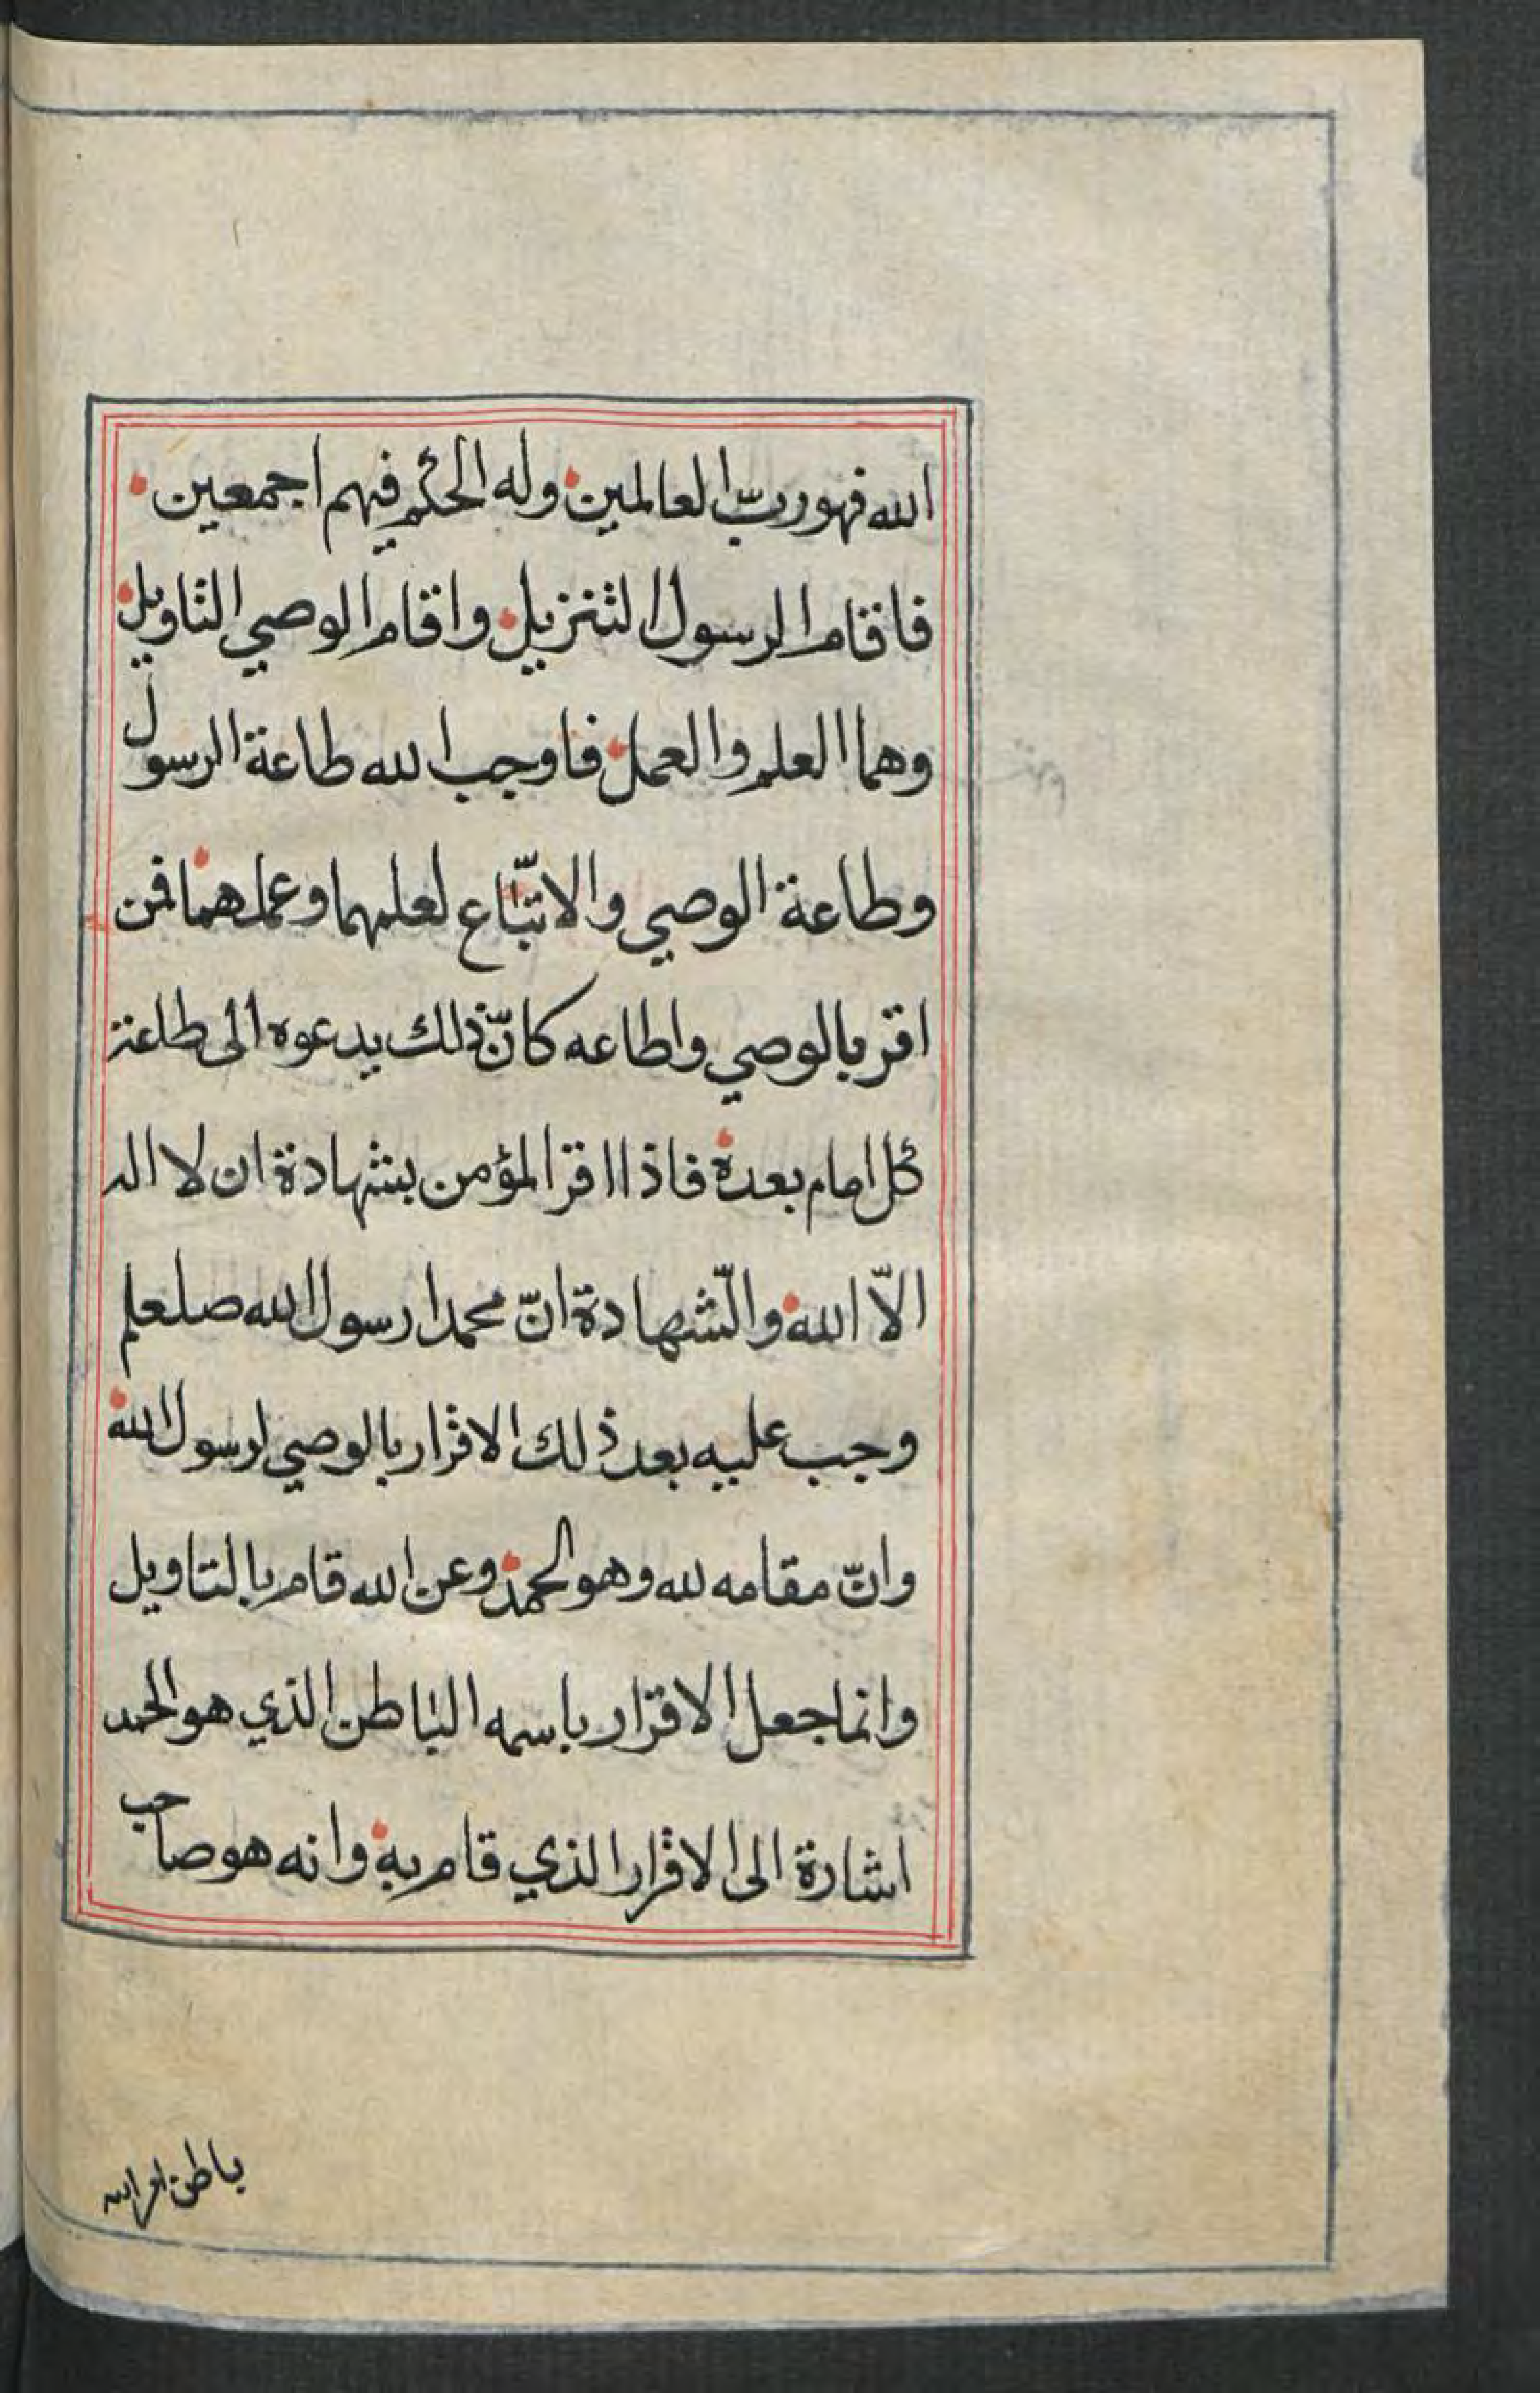 الله فهو ربّ العالمين وله الحكم فيهم اجمعين
فاقام الرسول التنزيل واقام الوصي التاويل
وهما العلم والعمل فاوجب الله طاعة الرسول
وطاعة الوصي والاتّباع لعلمهما وعملهما فمن
اقر بالوصي واطاعه كانّ ذلك يدعوه الى طاعة
كل امام بعده فاذا اقر المؤمن بشهادة ان لا اله
الاّ الله والشّهادة انّ محمدا رسول الله صلعلم
وجب عليه بعد ذلك الاقرار بالوصي لرسول الله
وانّ مقامه لله وهو الحمد وعن الله قام بالتاويل
وانما جعل الاقرار باسمه الباطن الذي هو الحمد
اشارة الى الاقرار الذي قام به وانه هو صاحب
باطن امر الله